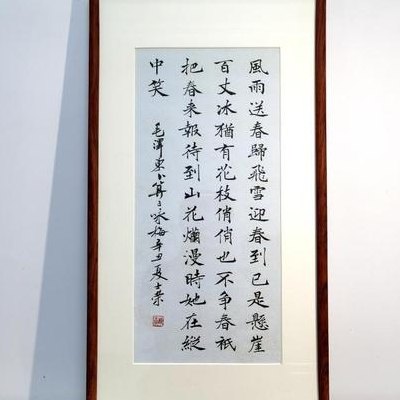 風雨送春歸飛雪迎春到已是懸崖
百丈冰猶有花枝俏俏也不争春祇
把春来報待到山花爛漫時她在縱
中笑
毛澤東卜算子咏梅辛丑夏士荣